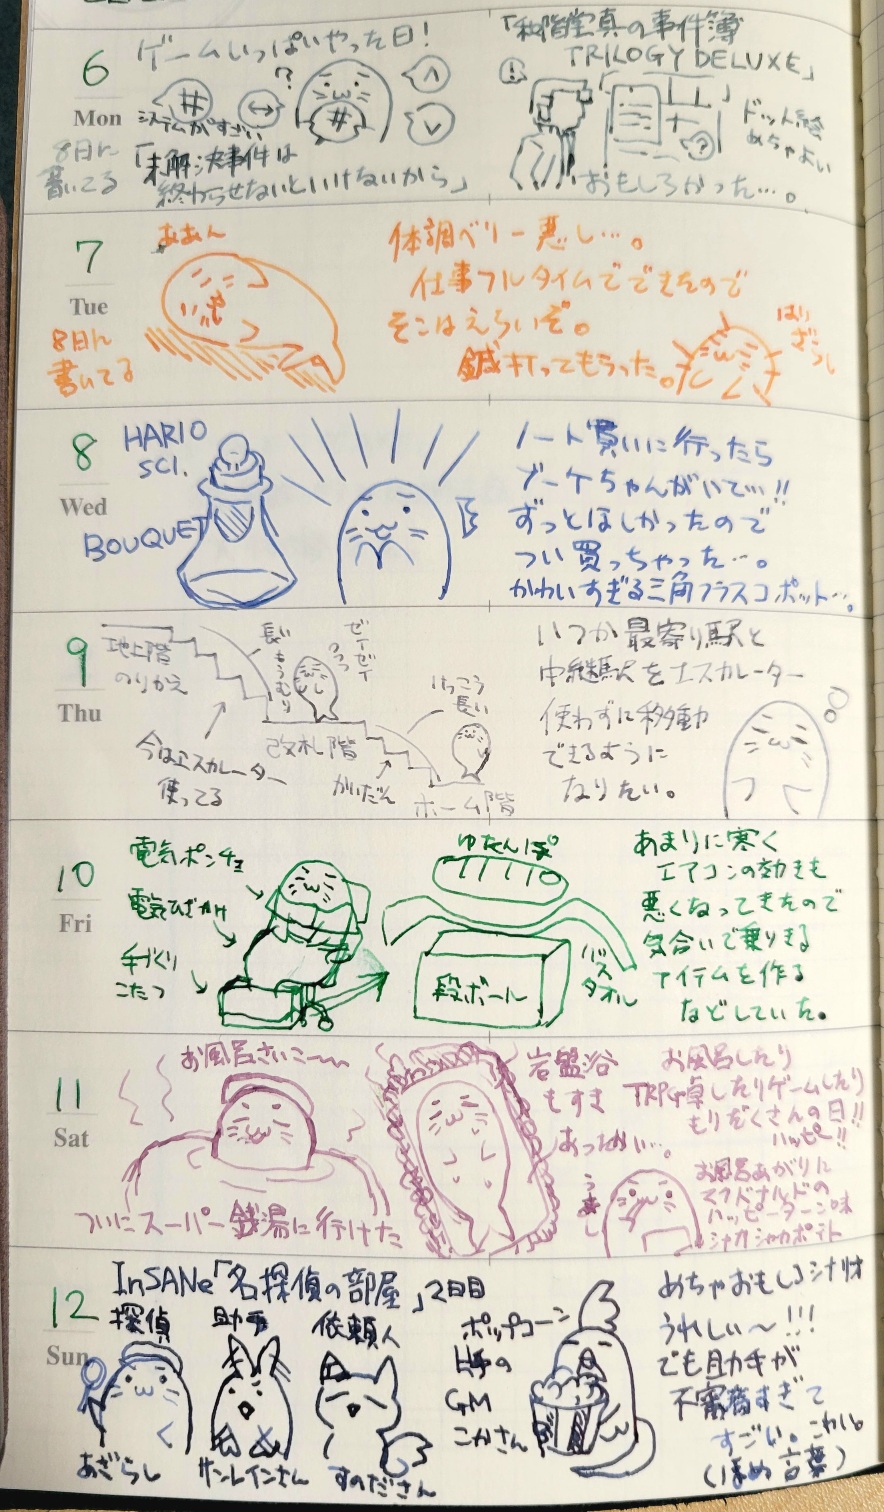 6
Mon
8日に
書いてる
ゲームいっぱいやった日!
#
↔
?
#
システムがすごい
「未解決事件は
終わらせないといけないから」
「和階堂真の事件簿
TRILOGY DELUXE」
!
?
ドット絵
めちゃよい
おもしろかった…。
7
Tue
8日に
書いてる
ああん
体調ベリー悪し…。
仕事フルタイムでできたので
そこはえらいぞ。
鍼打ってもらった。
はり
ざらし
8
Wed
HARIO
SCI.
BOUQUET
ノート買いに行ったら
ブーケちゃんがいて…!!
ずっとほしかったので
つい買っちゃった…。
かわいすぎる三角フラスコポット…。
9
Thu
地上階
のりかえ
長い
もうむり
ゼイゼイ
けっこう
長い
今はエスカレーター
使ってる
改札階
かいだん
ホーム階
いつか最寄り駅と
中継駅をエスカレーター
使わずに移動
できるように
なりたい。
10
Fri
電気ポンチョ
電気ひざかけ
手づくり
こたつ
ゆたんぽ
段ボール
バスタオル
あまりに寒く
エアコンの効きも
悪くなってきたので
気合いで乗りきる
アイテムを作る
などしていた。
11
Sat
お風呂さいこ〜〜
ついにスーパー銭湯に行けた
岩盤浴
もすき
あったかい…。
うまし
お風呂したり
TRPG卓したりゲームしたり
もりだくさんの日!!
ハッピー!!
お風呂あがりに
マクドナルドの
ハッピーターン味
シャカシャカポテト
12
Sun
InSANe「名探偵の部屋」2日目
探偵
助手
依頼人
あざらし
サンレインさん
すのださん
ポップコーン
上手の
GM
こかさん
めちゃおもしろシナリオ
うれしい〜!!!
でも助手が
不審者すぎて
すごい。こわい。
(ほめ言葉)